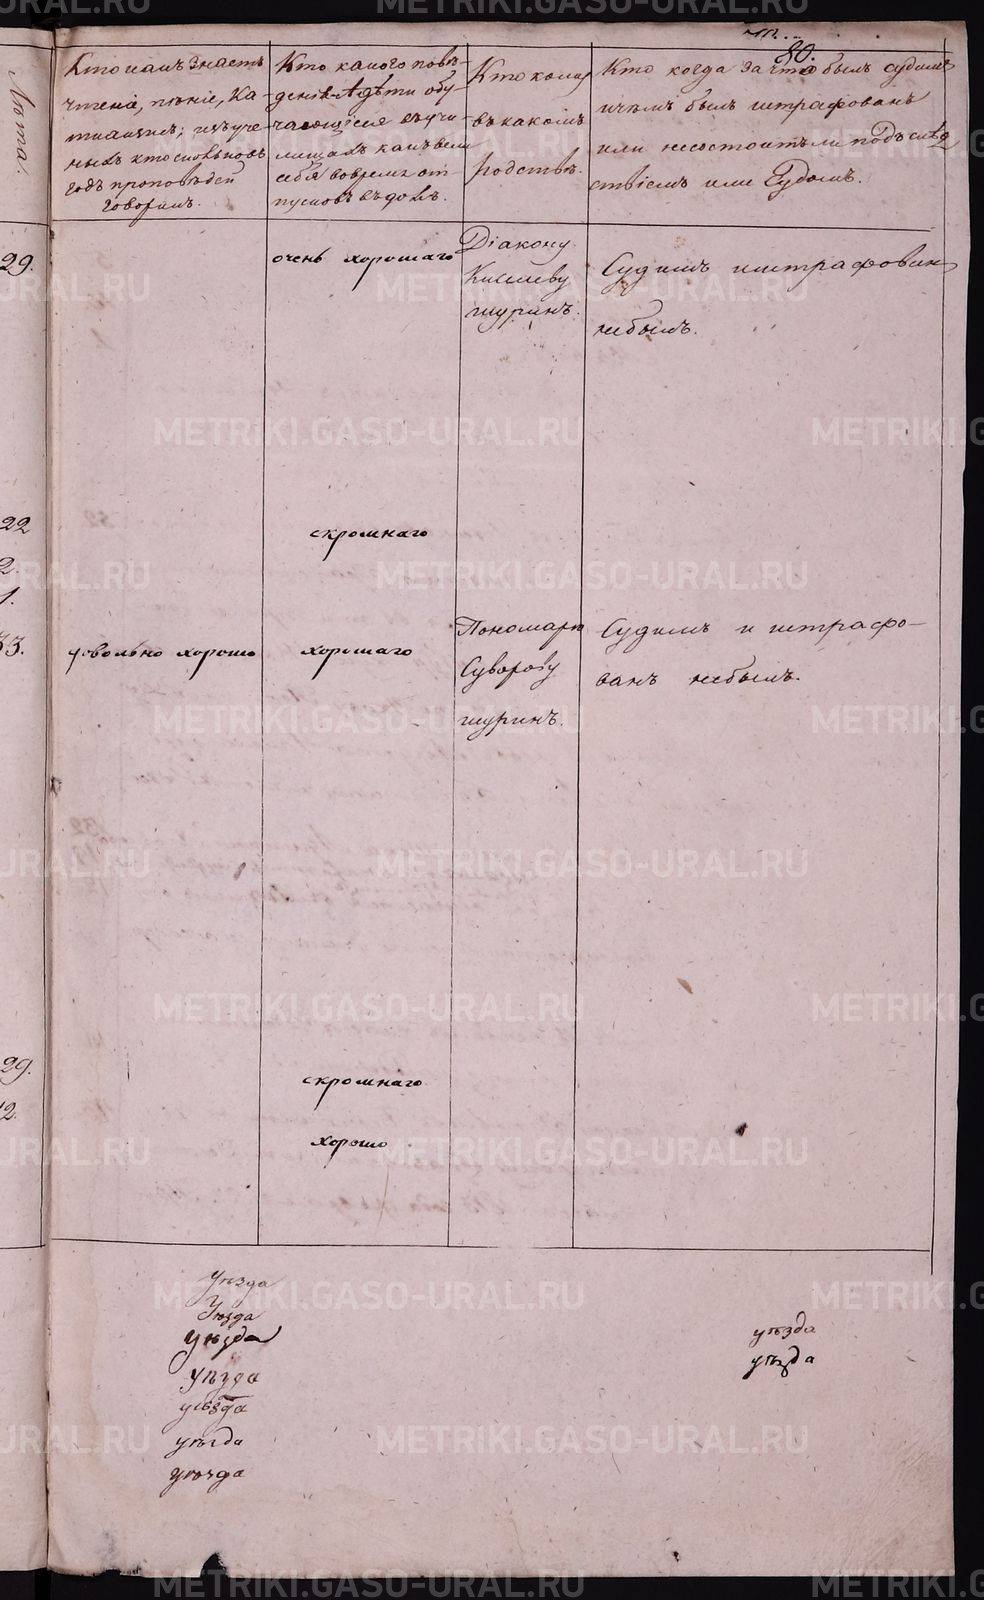 80.
Кто какъ знаетъ
чтеніе, пѣніе, Ка-
тихизисъ; изъ уче-
ныхъ кто сколько въ
годъ проповѣдей
говорилъ.
Кто какого пове-
денія. А дѣти обу-
чающіеся въ учи-
лищахъ какъ вели
себя во время от-
пусковъ въ домъ.
Кто кому
въ какомъ
родствѣ.
Кто когда за что былъ судимъ
и чѣмъ былъ штрафованъ
или не состоитъ ли подъ слѣд
ствіемъ или Судомъ.
Лѣта.
29.
очень хорошаго
Діакону
Киселеву
шуринъ.
Судимъ и штрафован
не былъ.
22
скромнаго
2.
1.
33.
довольно хорошо
хорошаго
Пономарю
Суворову
шуринъ.
Судимъ и штрафо-
ванъ не былъ.
29.
скромнаго
12.
хорошо
уѣзда
Уѣзда
уѣзда
уѣзда
уѣзда
уѣзда
уѣзда
уѣзда
уѣзда
METRIKI.GASO-URAL.RU